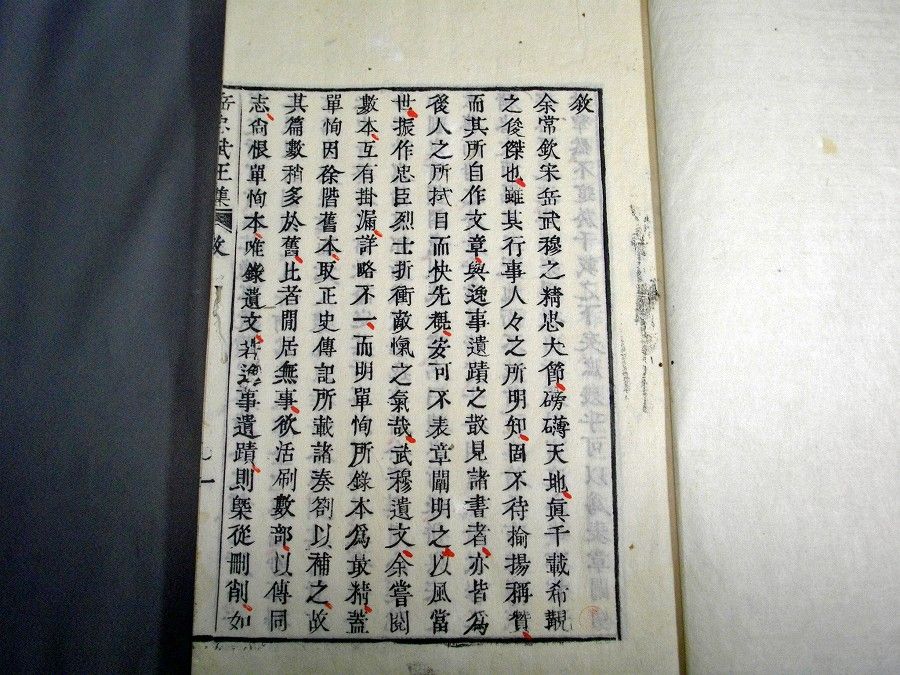 敘
余常欽宋岳武穆之精忠大節磅礴天地眞千載希覯
之俊傑也雖其行事人々之所明知固不待揄揚稱贊
而其所自作文章與逸事遺蹟之散見諸書者亦皆爲
後人之所拭目而快先覩安可不表章闡明之以風當
世振作忠臣烈士折衝敵愾之氣哉武穆遺文余嘗閱
數本互有掛漏詳略不一而明單恂所錄本爲最精蓋
單恂因徐階舊本取正史傳記所載諸湊劄以補之故
其篇數稍多於舊比者閒居無事欲活刷數部以傳同
志尙恨單恂本唯錄遺文若逸事遺蹟則槩從刪削如
岳忠武王集 敘 一